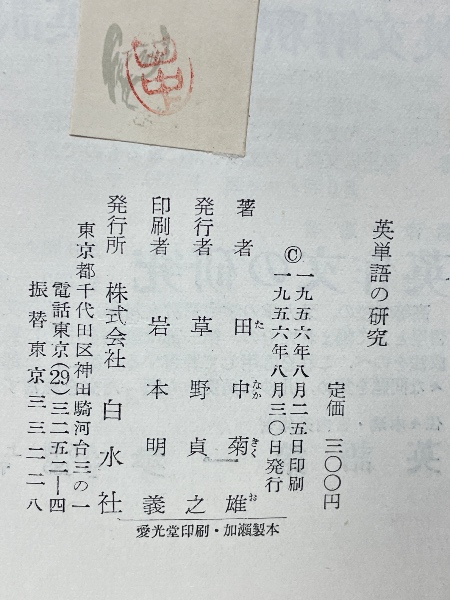 英単語の研究
定価 三〇〇円
一九五六年八月二五日印刷
Ⓒ一九五六年八月三〇日発行
著者 田中菊雄
た なか きく お
発行者 草野貞之
印刷者 岩本明義
発行所 株式会社 白水社
東京都千代田区神田駿河台三の一
電話東京(29)三二五二―四
振替東京三三二二八
愛光堂印刷・加瀬製本